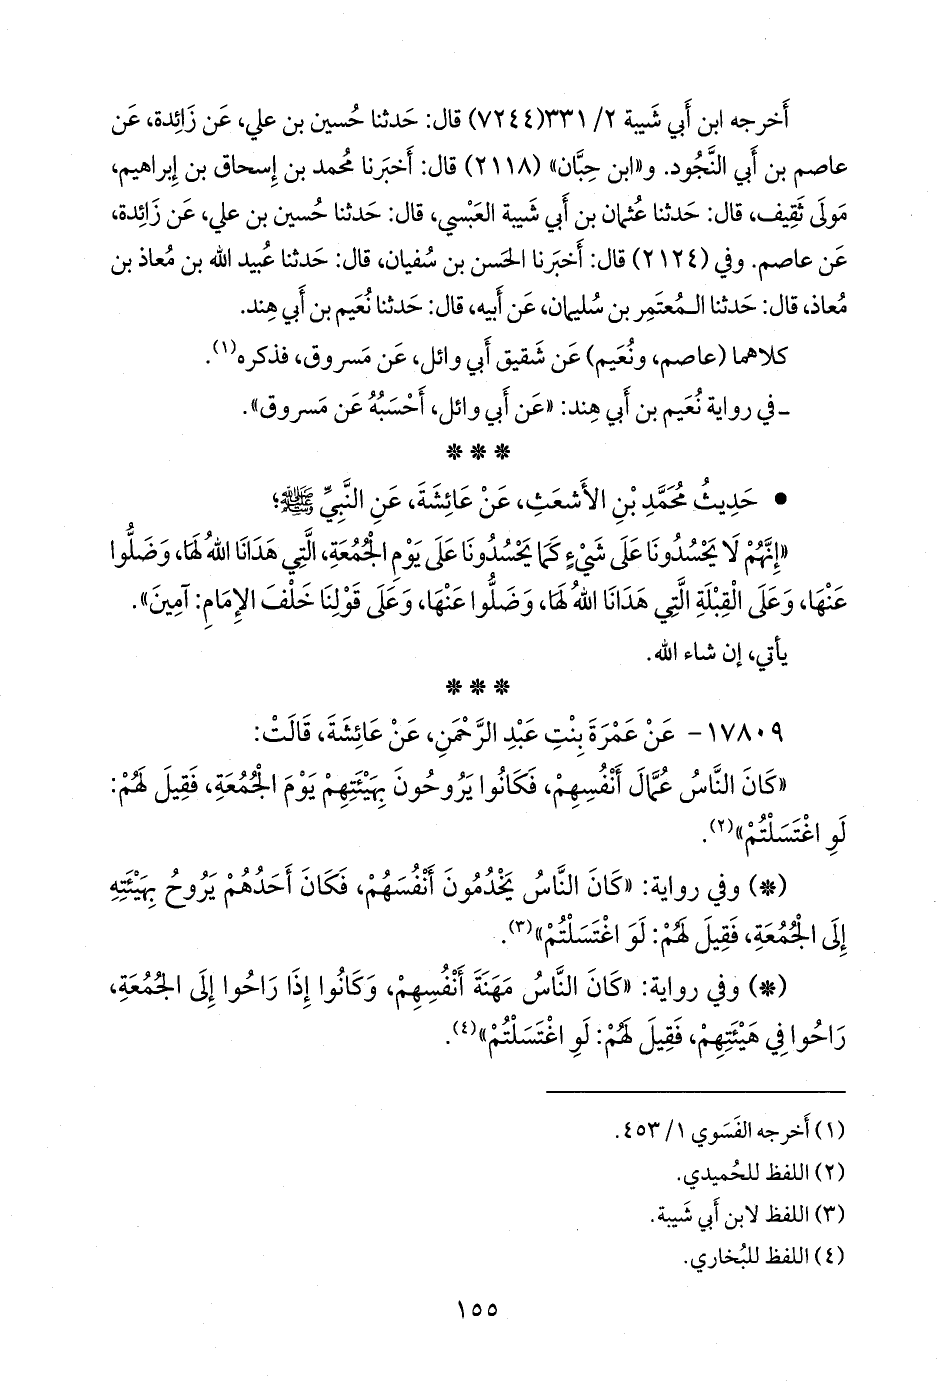 أَخرجه ابن أَبي شَيبة ٢/ ٣٣١(٧٢٤٤) قال: حَدثنا حُسين بن علي، عَن زَائِدة، عَن
عاصم بن أَبي النَّجُود. و«ابن حِبَّان» (٢١١٨) قال: أَخبَرنا مُحمد بن إِسحاق بن إِبراهيم،
مَولَى ثَقِيف، قال: حَدثنا عُثمان بن أَبي شَيبة العَبْسي، قال: حَدثنا حُسين بن علي، عَن زَائِدة،
عَن عاصم. وفي (٢١٢٤) قال: أَخبَرنا الحَسن بن سُفيان، قال: حَدثنا عُبيد الله بن مُعاذ بن
مُعاذ، قال: حَدثنا المُعتَمِر بن سُليمان، عَن أَبيه، قال: حَدثنا نُعَيم بن أَبي هِند.
كلاهما (عاصم، ونُعَيم) عَن شَقيق أَبي وائل، عَن مَسروق، فذكره(١).
ـ في رواية نُعَيم بن أَبي هِند: «عَن أَبي وائل، أَحْسَبُهُ عَن مَسروق».
* * *
• حَدِيثُ مُحَمَّدِ بْنِ الأَشعَثِ، عَنْ عَائِشَةَ، عَنِ النَّبِيِّ ﷺ؛
«إِنَّهُمْ لَا يَحْسُدُونَا عَلَى شَيْءٍ كَمَا يَحْسُدُونَا عَلَى يَوْمِ الْجُمُعَةِ، الَّتِي هَدَانَا اللهُ لَهَا، وَضَلُّوا
عَنْهَا، وَعَلَى الْقِبْلَةِ الَّتِي هَدَانَا اللهُ لَهَا، وَضَلُّوا عَنْهَا، وَعَلَى قَوْلِنَا خَلْفَ الإِمَامِ: آمِينَ».
يأتي، إن شاء الله.
* * *
١٧٨٠٩- عَنْ عَمْرَةَ بِنْتِ عَبْدِ الرَّحْمَنِ، عَنْ عَائِشَةَ، قَالَتْ:
«كَانَ النَّاسُ عُمَّالَ أَنْفُسِهِمْ، فَكَانُوا يَرُوحُونَ بِهَيْئَتِهِمْ يَوْمَ الْجُمُعَةِ، فَقِيلَ لَهُمْ:
لَوِ اغْتَسَلْتُمْ»(٢).
(*) وفي رواية: «كَانَ النَّاسُ يَخْدُمُونَ أَنْفُسَهُمْ، فَكَانَ أَحَدُهُمْ يَرُوحُ بِهَيْئَتِهِ
إِلَى الْجُمُعَةِ، فَقِيلَ لَهُمْ: لَوَ اغْتَسَلْتُمْ»(٣).
(*) وفي رواية: «كَانَ النَّاسُ مَهَنَةَ أَنْفُسِهِمْ، وَكَانُوا إِذَا رَاحُوا إِلَى الْجُمُعَةِ،
رَاحُوا فِي هَيْئَتِهِمْ، فَقِيلَ لَهُمْ: لَوِ اغْتَسَلْتُمْ»(٤).
(١) أَخرجه الفَسَوي ١/ ٤٥٣.
(٢) اللفظ للحُميدي.
(٣) اللفظ لابن أَبي شَيبة.
(٤) اللفظ للبُخاري.
١٥٥